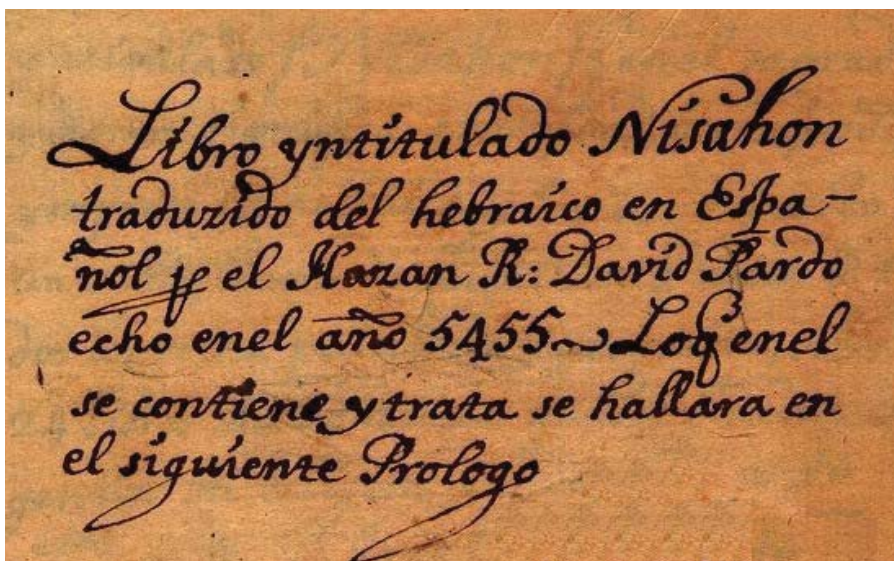 Libro yntitulado Nisahon
traduzido del hebraico en Espa-
ñol p el Hazan R: David Pardo
echo enel año 5455~Loq enel
se contiene y trata se hallara en
el siguiente Prologo